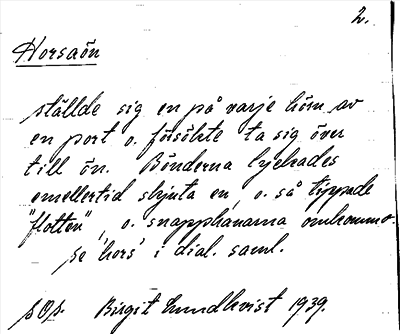 2.
Horsaön
ställde sig en på varje hörn av
en port o. försökte ta sig över
till ön. Bönderna lyckades
emellertid skjuta en, o. så tippade
"flotten", o. snapphanarna omkommo.
se 'hors' i dial. saml.
sOp. Birgit Lundkvist 1939.